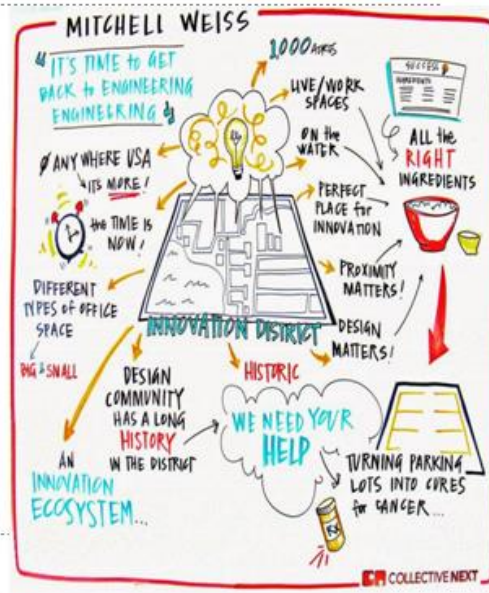 MITCHELL WEISS
"IT'S TIME to GET
BACK to ENGINEERING
ENGINEERING"
1,000 ACRES
LIVE/WORK
SPACES
ON the
WATER
PERFECT
PLACE for
INNOVATION
PROXIMITY
MATTERS!
DESIGN
MATTERS!
SUCCESS
INGREDIENTS
ALL the
RIGHT
INGREDIENTS
ANY WHERE USA
ITS MORE!
the TIME IS
NOW!
DIFFERENT
TYPES OF OFFICE
SPACE
BIG & SMALL
INNOVATION DISTRICT
HISTORIC
DESIGN
COMMUNITY
HAS A LONG
HISTORY
IN the DISTRICT
AN
INNOVATION
ECOSYSTEM...
WE NEED YOUR
HELP
TURNING PARKING
LOTS INTO CURES
for CANCER...
RX
COLLECTIVE NEXT